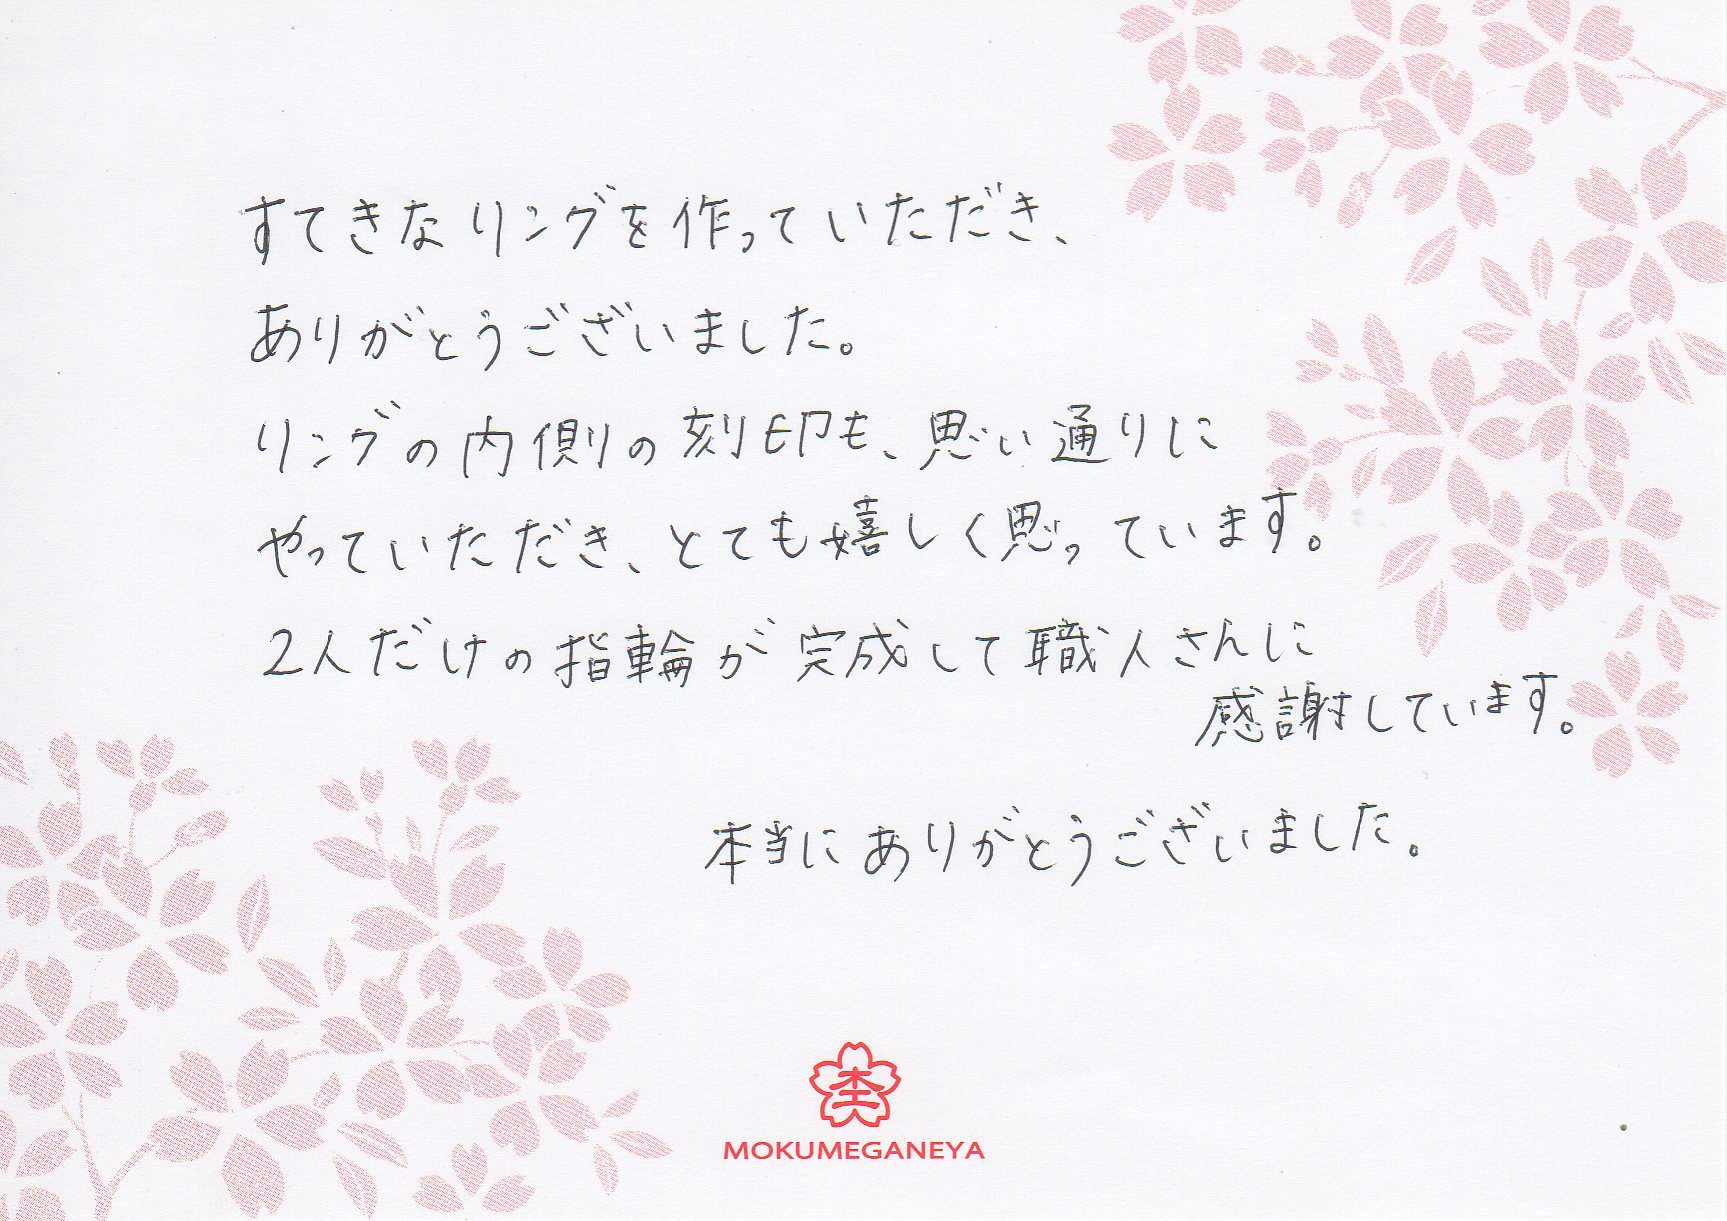 すてきなリングを作っていただき、
ありがとうございました。
リングの内側の刻印も、思い通りに
やっていただき、とても嬉しく思っています。
2人だけの指輪が完成して職人さんに
感謝しています。
本当にありがとうございました。
杢
MOKUMEGANEYA